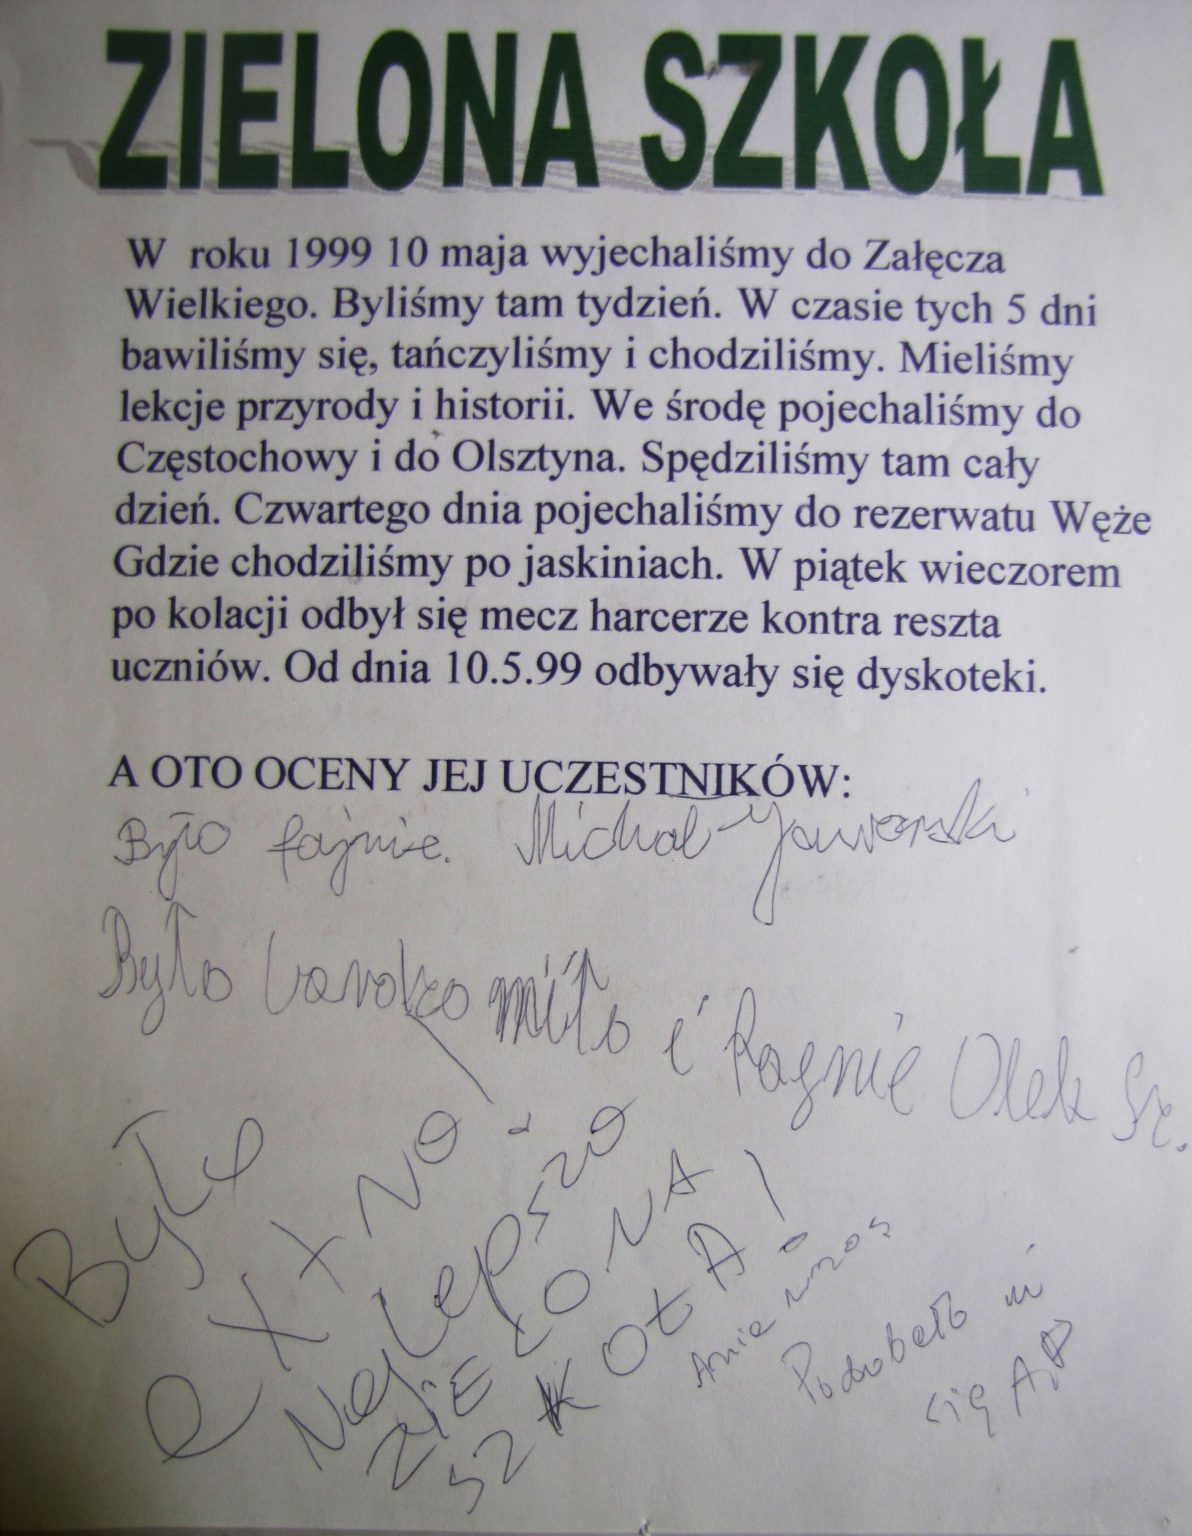 ZIELONA SZKOŁA
W roku 1999 10 maja wyjechaliśmy do Załęcza
Wielkiego. Byliśmy tam tydzień. W czasie tych 5 dni
bawiliśmy się, tańczyliśmy i chodziliśmy. Mieliśmy
lekcje przyrody i historii. We środę pojechaliśmy do
Częstochowy i do Olsztyna. Spędziliśmy tam cały
dzień. Czwartego dnia pojechaliśmy do rezerwatu Węże
Gdzie chodziliśmy po jaskiniach. W piątek wieczorem
po kolacji odbył się mecz harcerze kontra reszta
uczniów. Od dnia 10.5.99 odbywały się dyskoteki.
A OTO OCENY JEJ UCZESTNIKÓW:
Było fajnie. Michał Jaworski
Było bardzo miło i Olek Sz.
Było
extno!
Najlepsza
ZIELONA
SZKOŁA!
Ania
Podobało mi
się AP